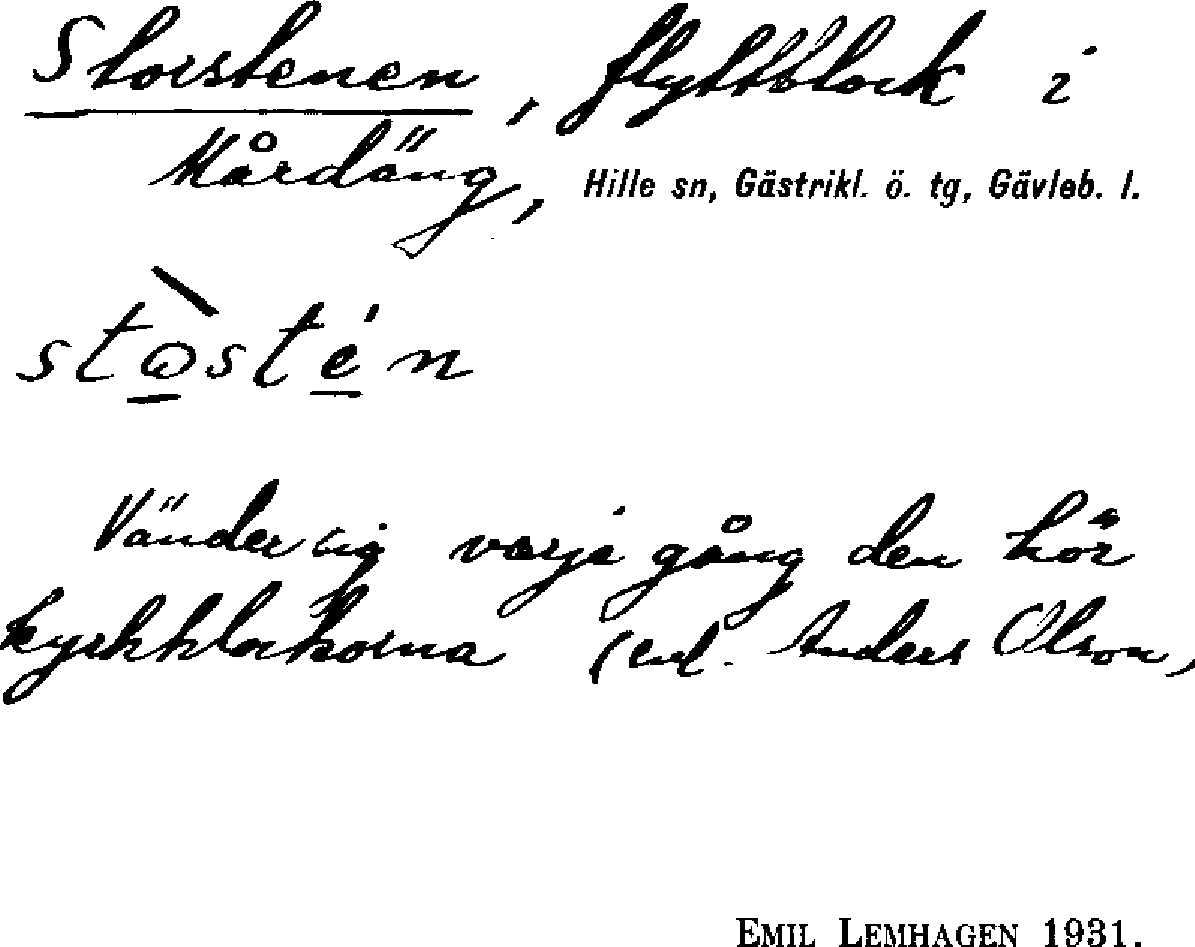 Storstenen, flyttblock i
Mårdäng, Hille sn, Gästrikl. ö. tg, Gävleb. l.
stòstén
Vänder sig varje gång den hör
kyrkklockorna (enl. Anders Olson,
EMIL LEMHAGEN 1931.